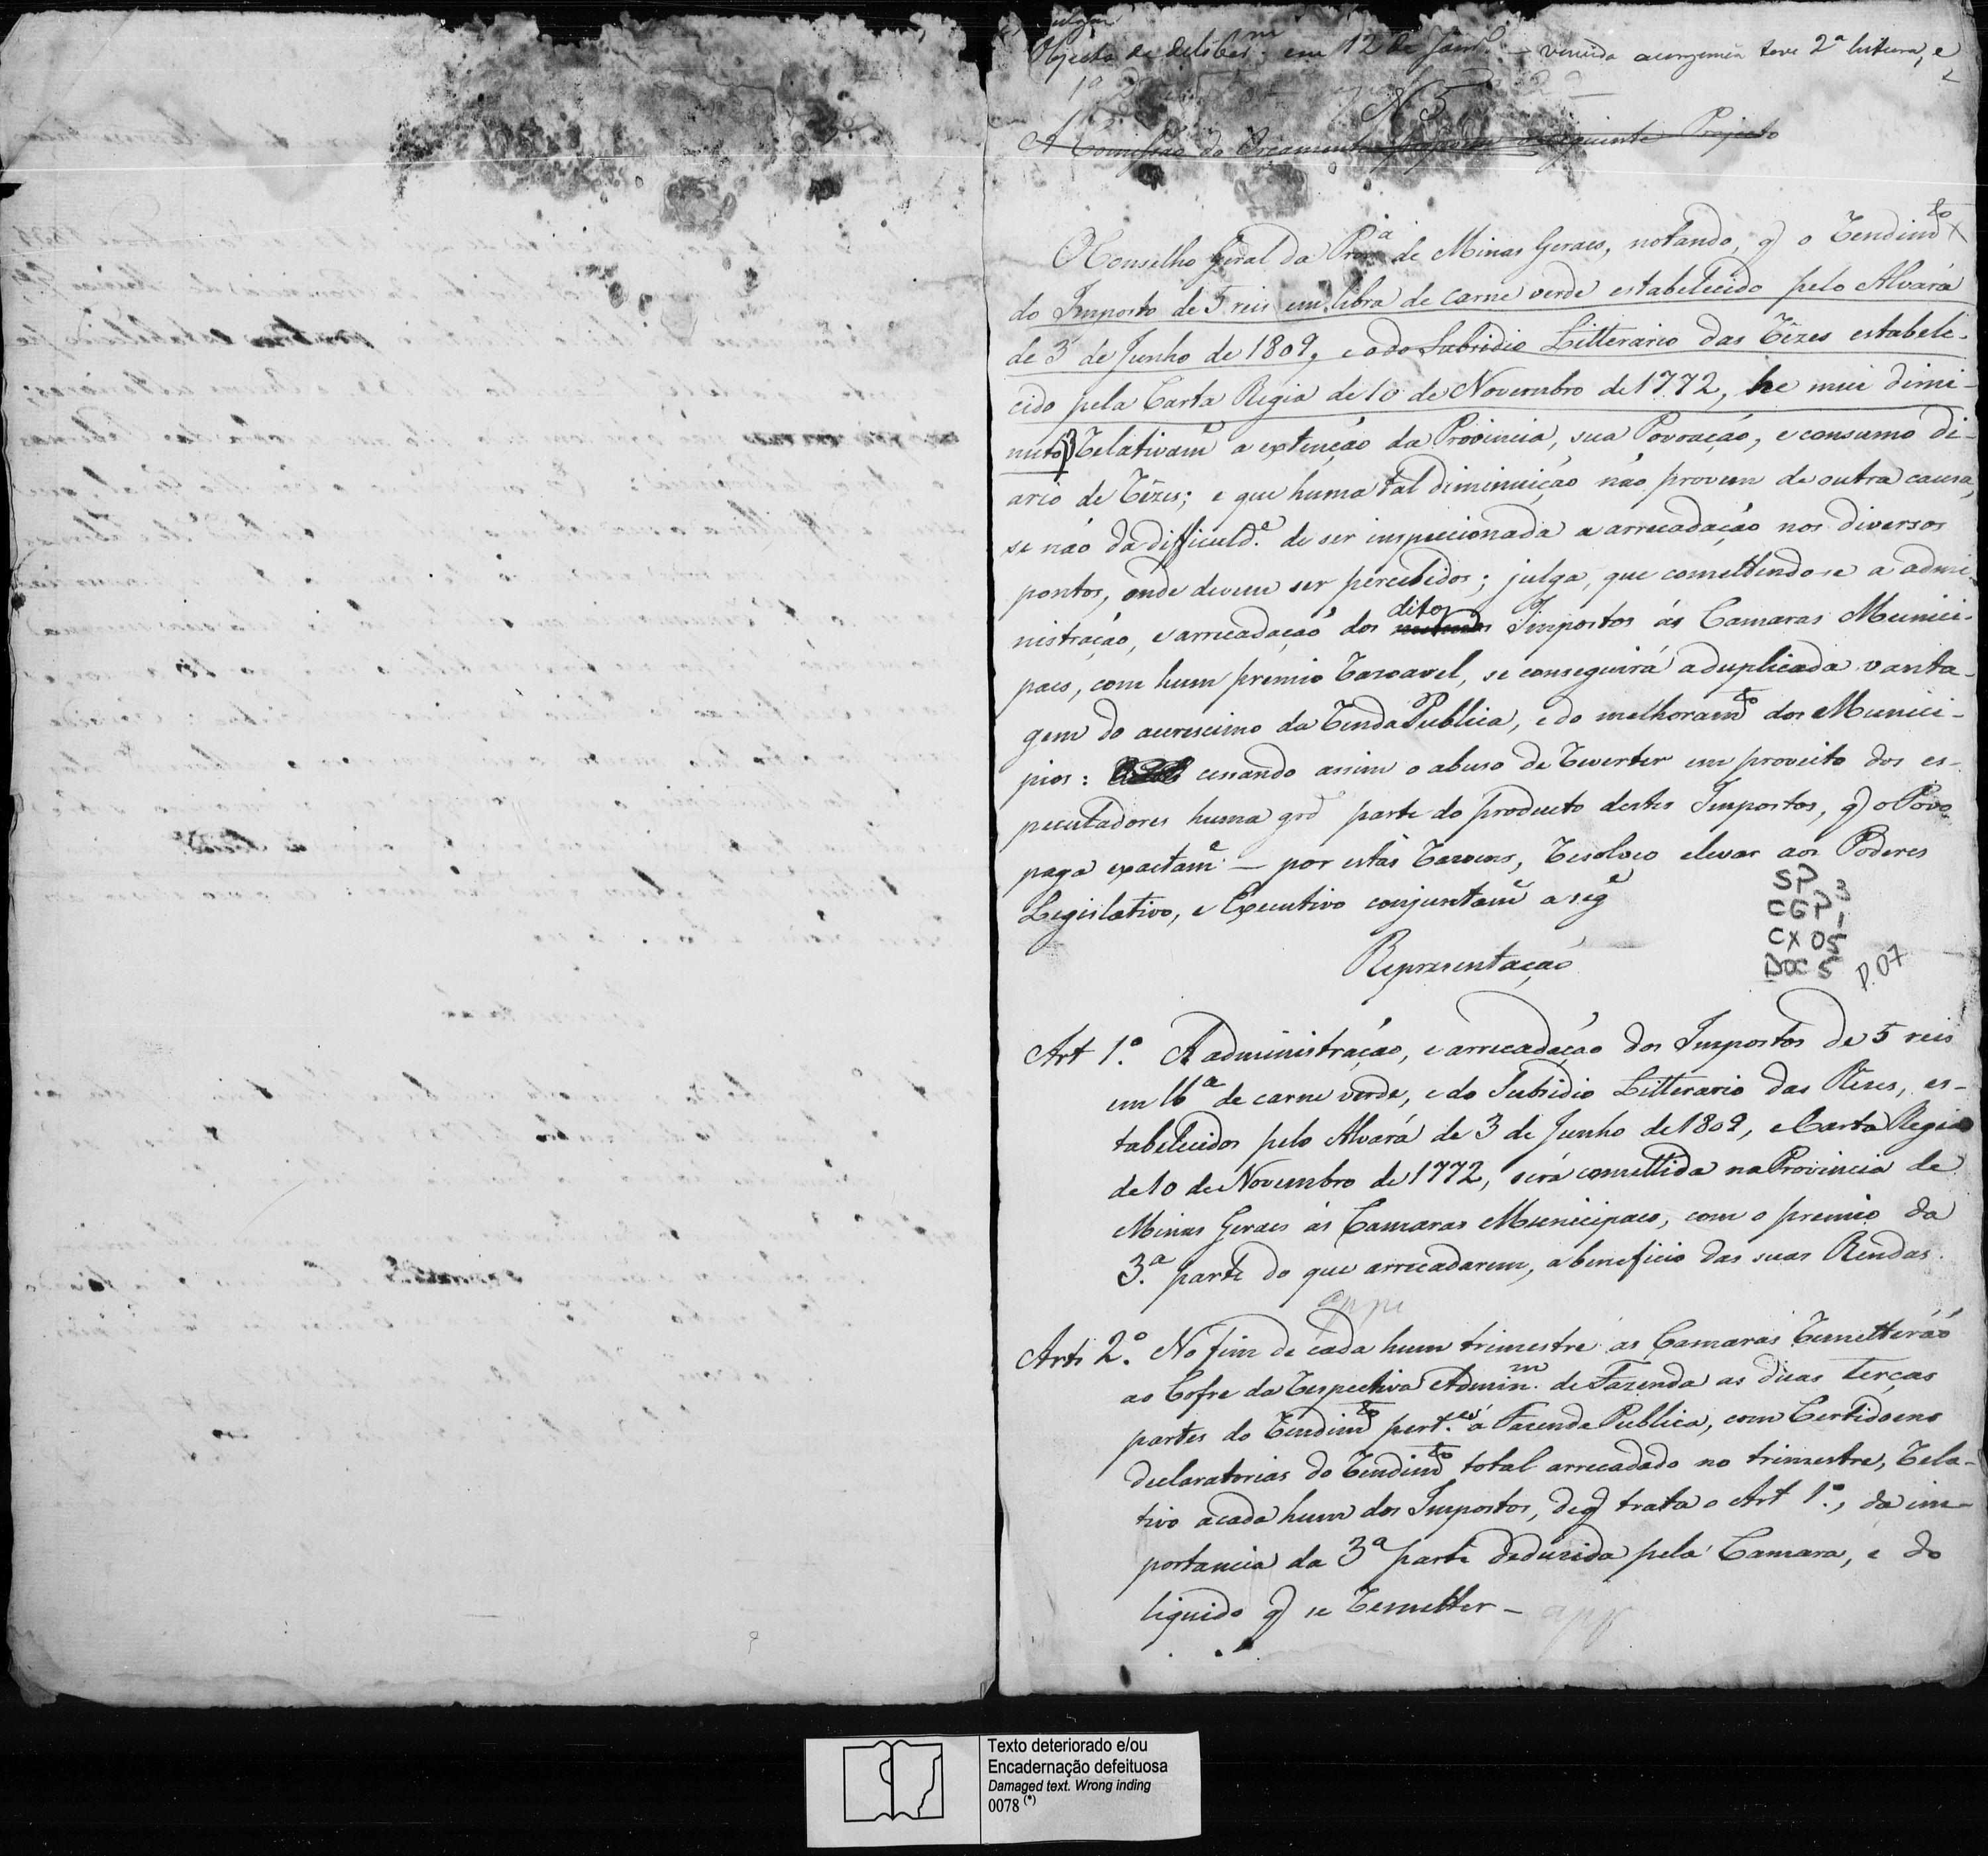 Objecto de deliber.m em 12 de Janr.o — vencida a urgencia teve 2ª leitura, e
1ª
N 5
A Comissão do Orçamento seguinte Projecto
O Conselho Geral da Prov.a de Minas Geraes, notando, q o Rendim.to
do Imposto de 5 reis em libra de carne verde estabelecido pelo Alvará
de 3 de Junho de 1809, e o do Subsidio Litterario das Rêzes estabele-
cido pela Carta Regia de 10 de Novembro de 1772, he mui dimi-
nuto Relativam.e a extenção da Provincia, sua Povoação, e consumo di-
ario de Rêzes; e que huma tal diminuição não provem de outra causa,
se não da difficuld.e de ser inspeccionada a arrecadação nos diversos
pontos, onde devem ser percebidos; julga, que comettendo-se a admi-
nistração, e arrecadação dos ditos Impostos ás Camaras Munici-
paes, com hum premio Razoavel, se conseguirá a duplicada vanta-
gem do accrescimo da Renda Publica, e do melhoram.to dos Munici-
pios: cessando assim o abuso de Reverter em proveito dos es-
peculadores huma grd parte do producto destes Impostos, q o Povo
paga exactam.e — por estas Razoens, Resolveo elevar aos Poderes
Legislativo, e Executivo conjuntam.e a seg.e
SP
CGP 1
CX 05
DOC 5
P.07
Representação
Art 1.º A administração, e arrecadação dos Impostos de 5 reis
em lb.a de carne verde, e do Subsidio Litterario das Rêzes, es-
tabelecidos pelo Alvará de 3 de Junho de 1809, e Carta Regia
de 10 de Novembro de 1772, será comettida na Provincia de
Minas Geraes ás Camaras Municipaes, com o premio da
3.ª parte do que arrecadarem, a beneficio das suas Rendas.
app
Art. 2.º No fim de cada hum trimestre as Camaras Remetterão
ao Cofre da Respectiva Admin.m de Fazenda as duas terças
partes do Rendim.to pert.es á Fazenda Publica, com Certidoens
declaratorias do Rendim.to total arrecadado no trimestre, Rela-
tivo a cada hum dos Impostos, de q trata o Art 1.º, da im-
portancia da 3ª parte deduzida pela Camara, e do
liquido q se Remetter —
app
Texto deteriorado e/ou
Encadernação defeituosa
Damaged text. Wrong inding
0078 (*)